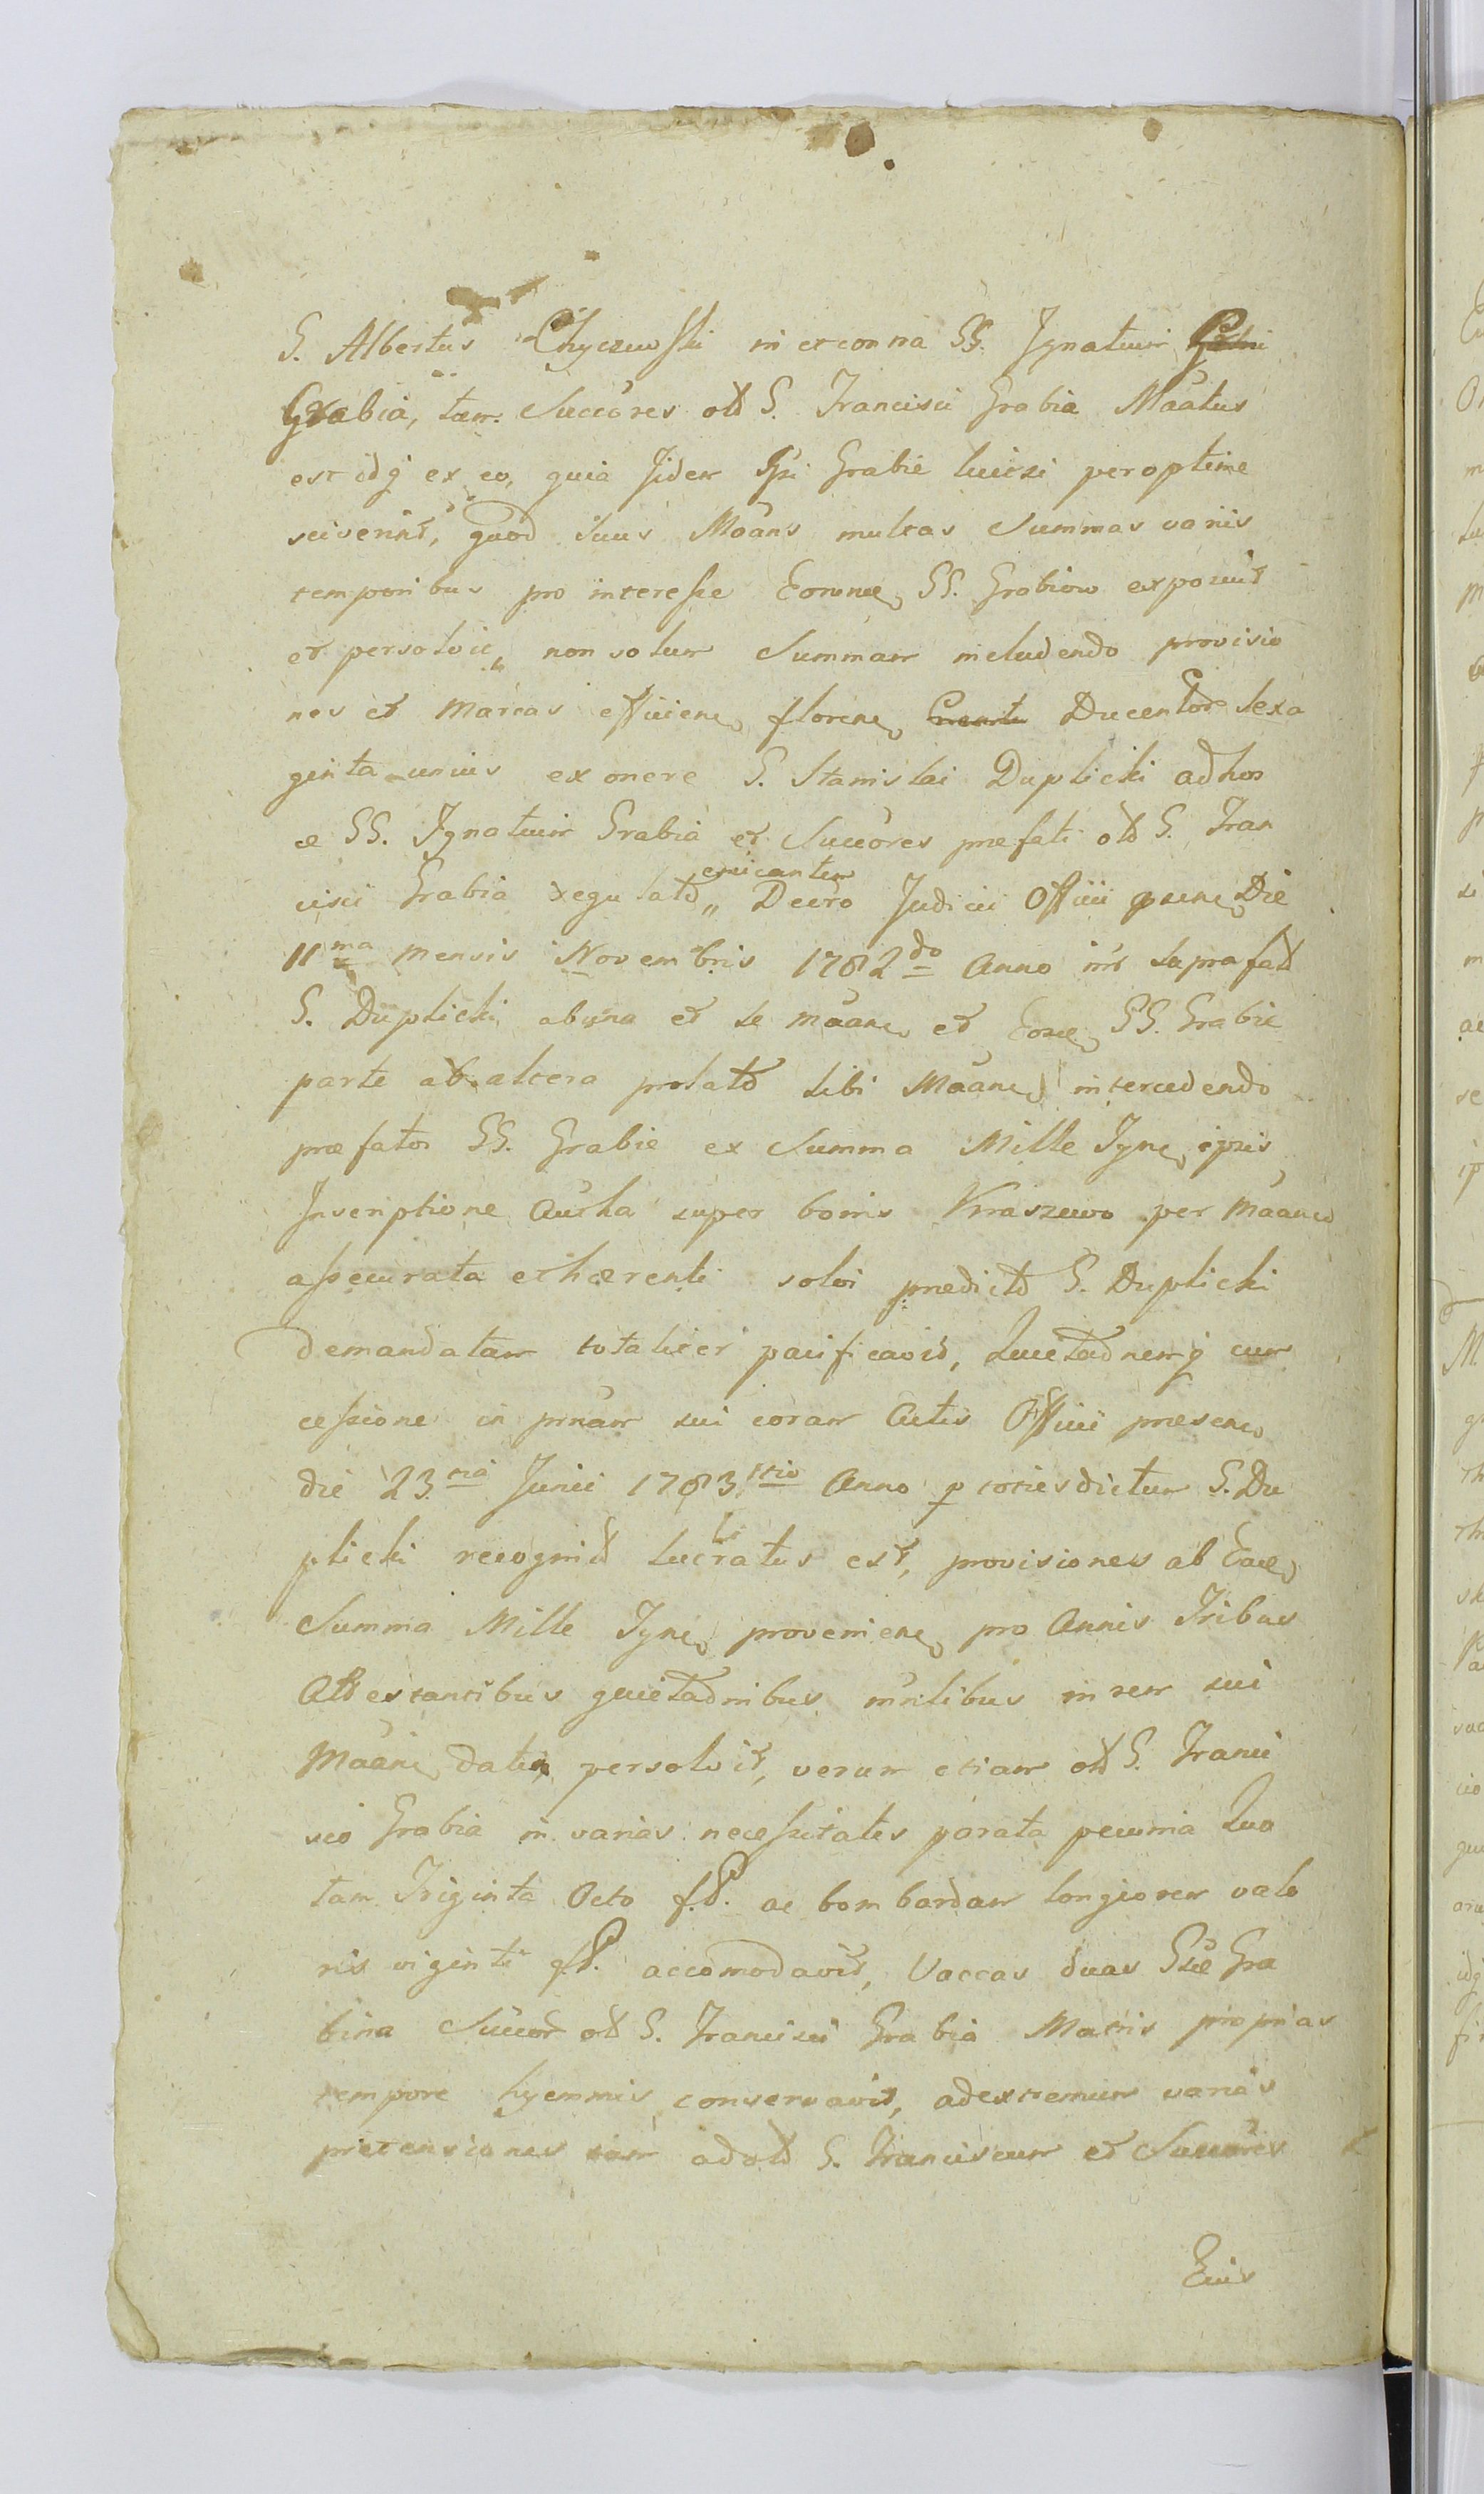 G. Albertus Chyczewski in et conna GG. Ignatium
Grabia, tam Succōres olđ G. Francisci Grabia Māatus
est idq̃ ex eo, quia Jidem Gsi Grabie luitzi peroptime
sciverint, quod Suus Māans multas Summas variis
temporibus pro interesse GG. Grabiow exposuit
et persolvit, non solum Summam includendo provisio
nes et marcas efficien florenor Ducentor sexa
ginta unius ex onere G. Stanislai Duplicki ad hos
ce GG. Ignatium Grabia et Succōres præfati olđ G. Fran
cisci Grabia regulatđ emicantem Decrō Judicii Officii præsen Die
11ma mensis Novembris 1782do Anno int suprafatđ
G. Duplicki ab una et se māan et GG. Grabie
parte ab altera prolatđ sibi Māan intercedendo
præfatos GG. Grabie ex Summa Mille Tyn ipsis
Inscriptione super bonis Kraszewo per Māan
assecurata et hærenti solvi prædictđ G. Duplicki
demandatam totaliter pacificavit, Quietađnemq̃ cum
cessione in prnam sui coram Actis Officii præsen
die 23tia Junii 1783tio Anno p toties dictum G. Du
plicki recognit lucratus est, provisiones ab
Summa Mille Tyn provenien pro Annis Tribus
Attestantibus quietađnibus in rem sui
Māan datis, persolvit, verum etiam olđ G. Franci
sco Grabia in varias necessitates parata pecunia Quo
tam Triginta Octo f. P. ac bombardam longiorem valo
ris viginti f. P. accōmodavit, Vaccas duas Gsæ Gra
bina Succor olđ G. Francisci Grabia Matris proprias
tempore hyemmis conservavit, ad extremum varias
prætensiones tam ad olđ G. Franciscum et Succōres
Eius